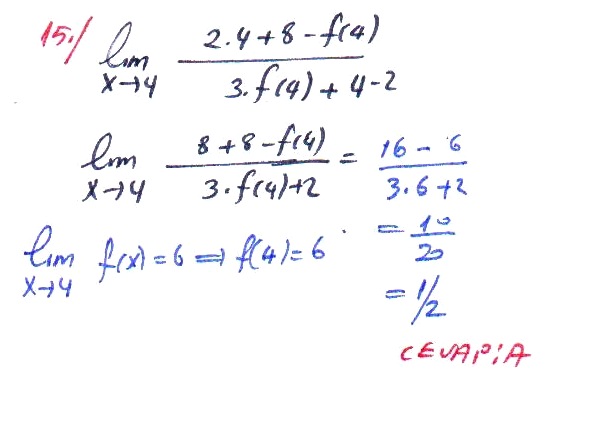 15./ lim x→4 2.4+8-f(4) / 3.f(4)+4-2
lim x→4 8+8-f(4) / 3.f(4)+2 = 16-6 / 3.6+2
lim x→4 f(x)=6 ⇒ f(4)=6
= 10/20
= 1/2
CEVAP:A